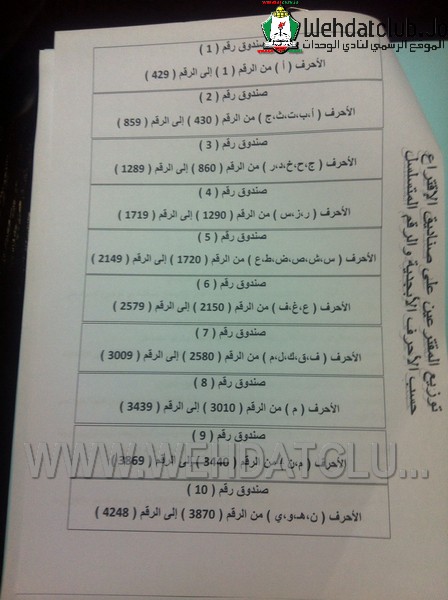 Wehdatclub.Jo
الموقع الرسمي لنادي الوحدات
توزيع المقترعين على صناديق الإقتراع
حسب الأحرف الأبجدية والرقم المتسلسل
صندوق رقم ( 1 )
الأحرف ( أ ) من الرقم ( 1 ) إلى الرقم ( 429 )
صندوق رقم ( 2 )
الأحرف ( أ،ب،ت،ث،ج ) من الرقم ( 430 ) إلى الرقم ( 859 )
صندوق رقم ( 3 )
الأحرف ( ج،ح،خ،د،ر ) من الرقم ( 860 ) إلى الرقم ( 1289 )
صندوق رقم ( 4 )
الأحرف ( ر،ز،س ) من الرقم ( 1290 ) إلى الرقم ( 1719 )
صندوق رقم ( 5 )
الأحرف ( س،ش،ص،ض،ط،ع ) من الرقم ( 1720 ) إلى الرقم ( 2149 )
صندوق رقم ( 6 )
الأحرف ( ع،غ،ف ) من الرقم ( 2150 ) إلى الرقم ( 2579 )
صندوق رقم ( 7 )
الأحرف ( ف،ق،ك،ل،م ) من الرقم ( 2580 ) إلى الرقم ( 3009 )
صندوق رقم ( 8 )
الأحرف ( م ) من الرقم ( 3010 ) إلى الرقم ( 3439 )
صندوق رقم ( 9 )
الأحرف ( م،ن ) من الرقم ( 3440 ) إلى الرقم ( 3869 )
WWW.WEHDATCLU...
صندوق رقم ( 10 )
الأحرف ( ن،هـ،و،ي ) من الرقم ( 3870 ) إلى الرقم ( 4248 )